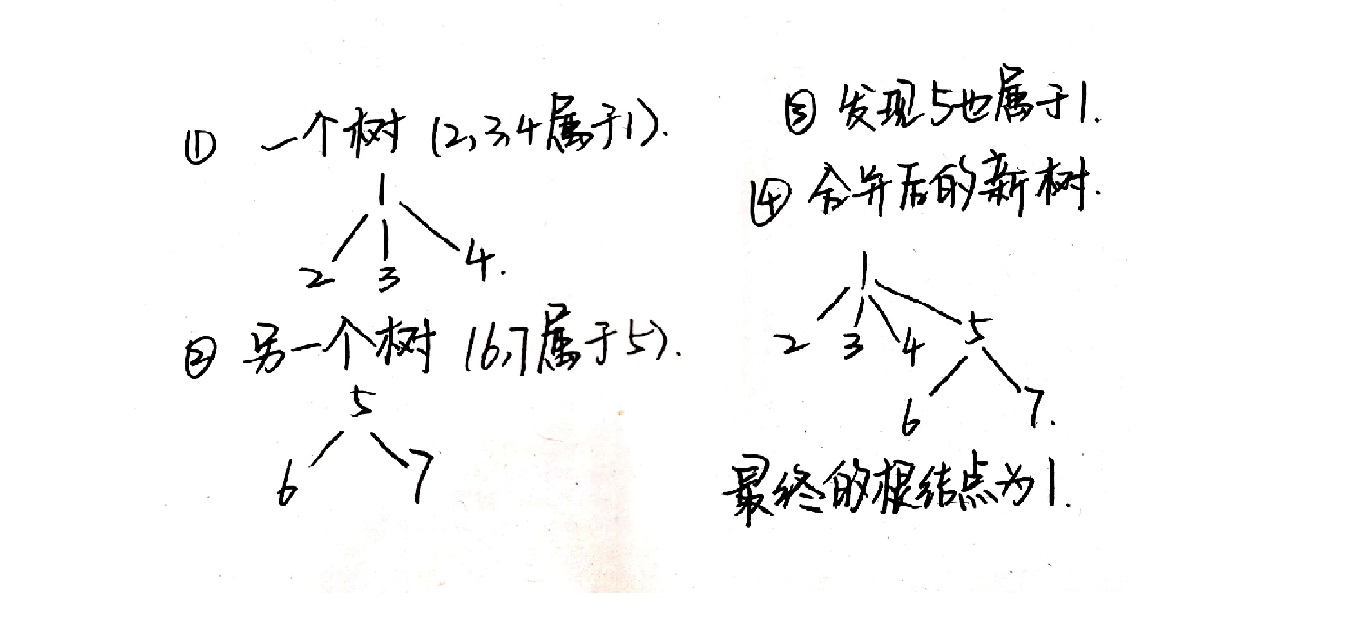 ① 一个树 (2,3,4属于1).
1
2 3 4.
② 另一个树 (6,7属于5).
5
6 7
③ 发现5也属于1.
④ 合并后的新树.
1
2 3 4 5
6 7.
最终的根结点为1.